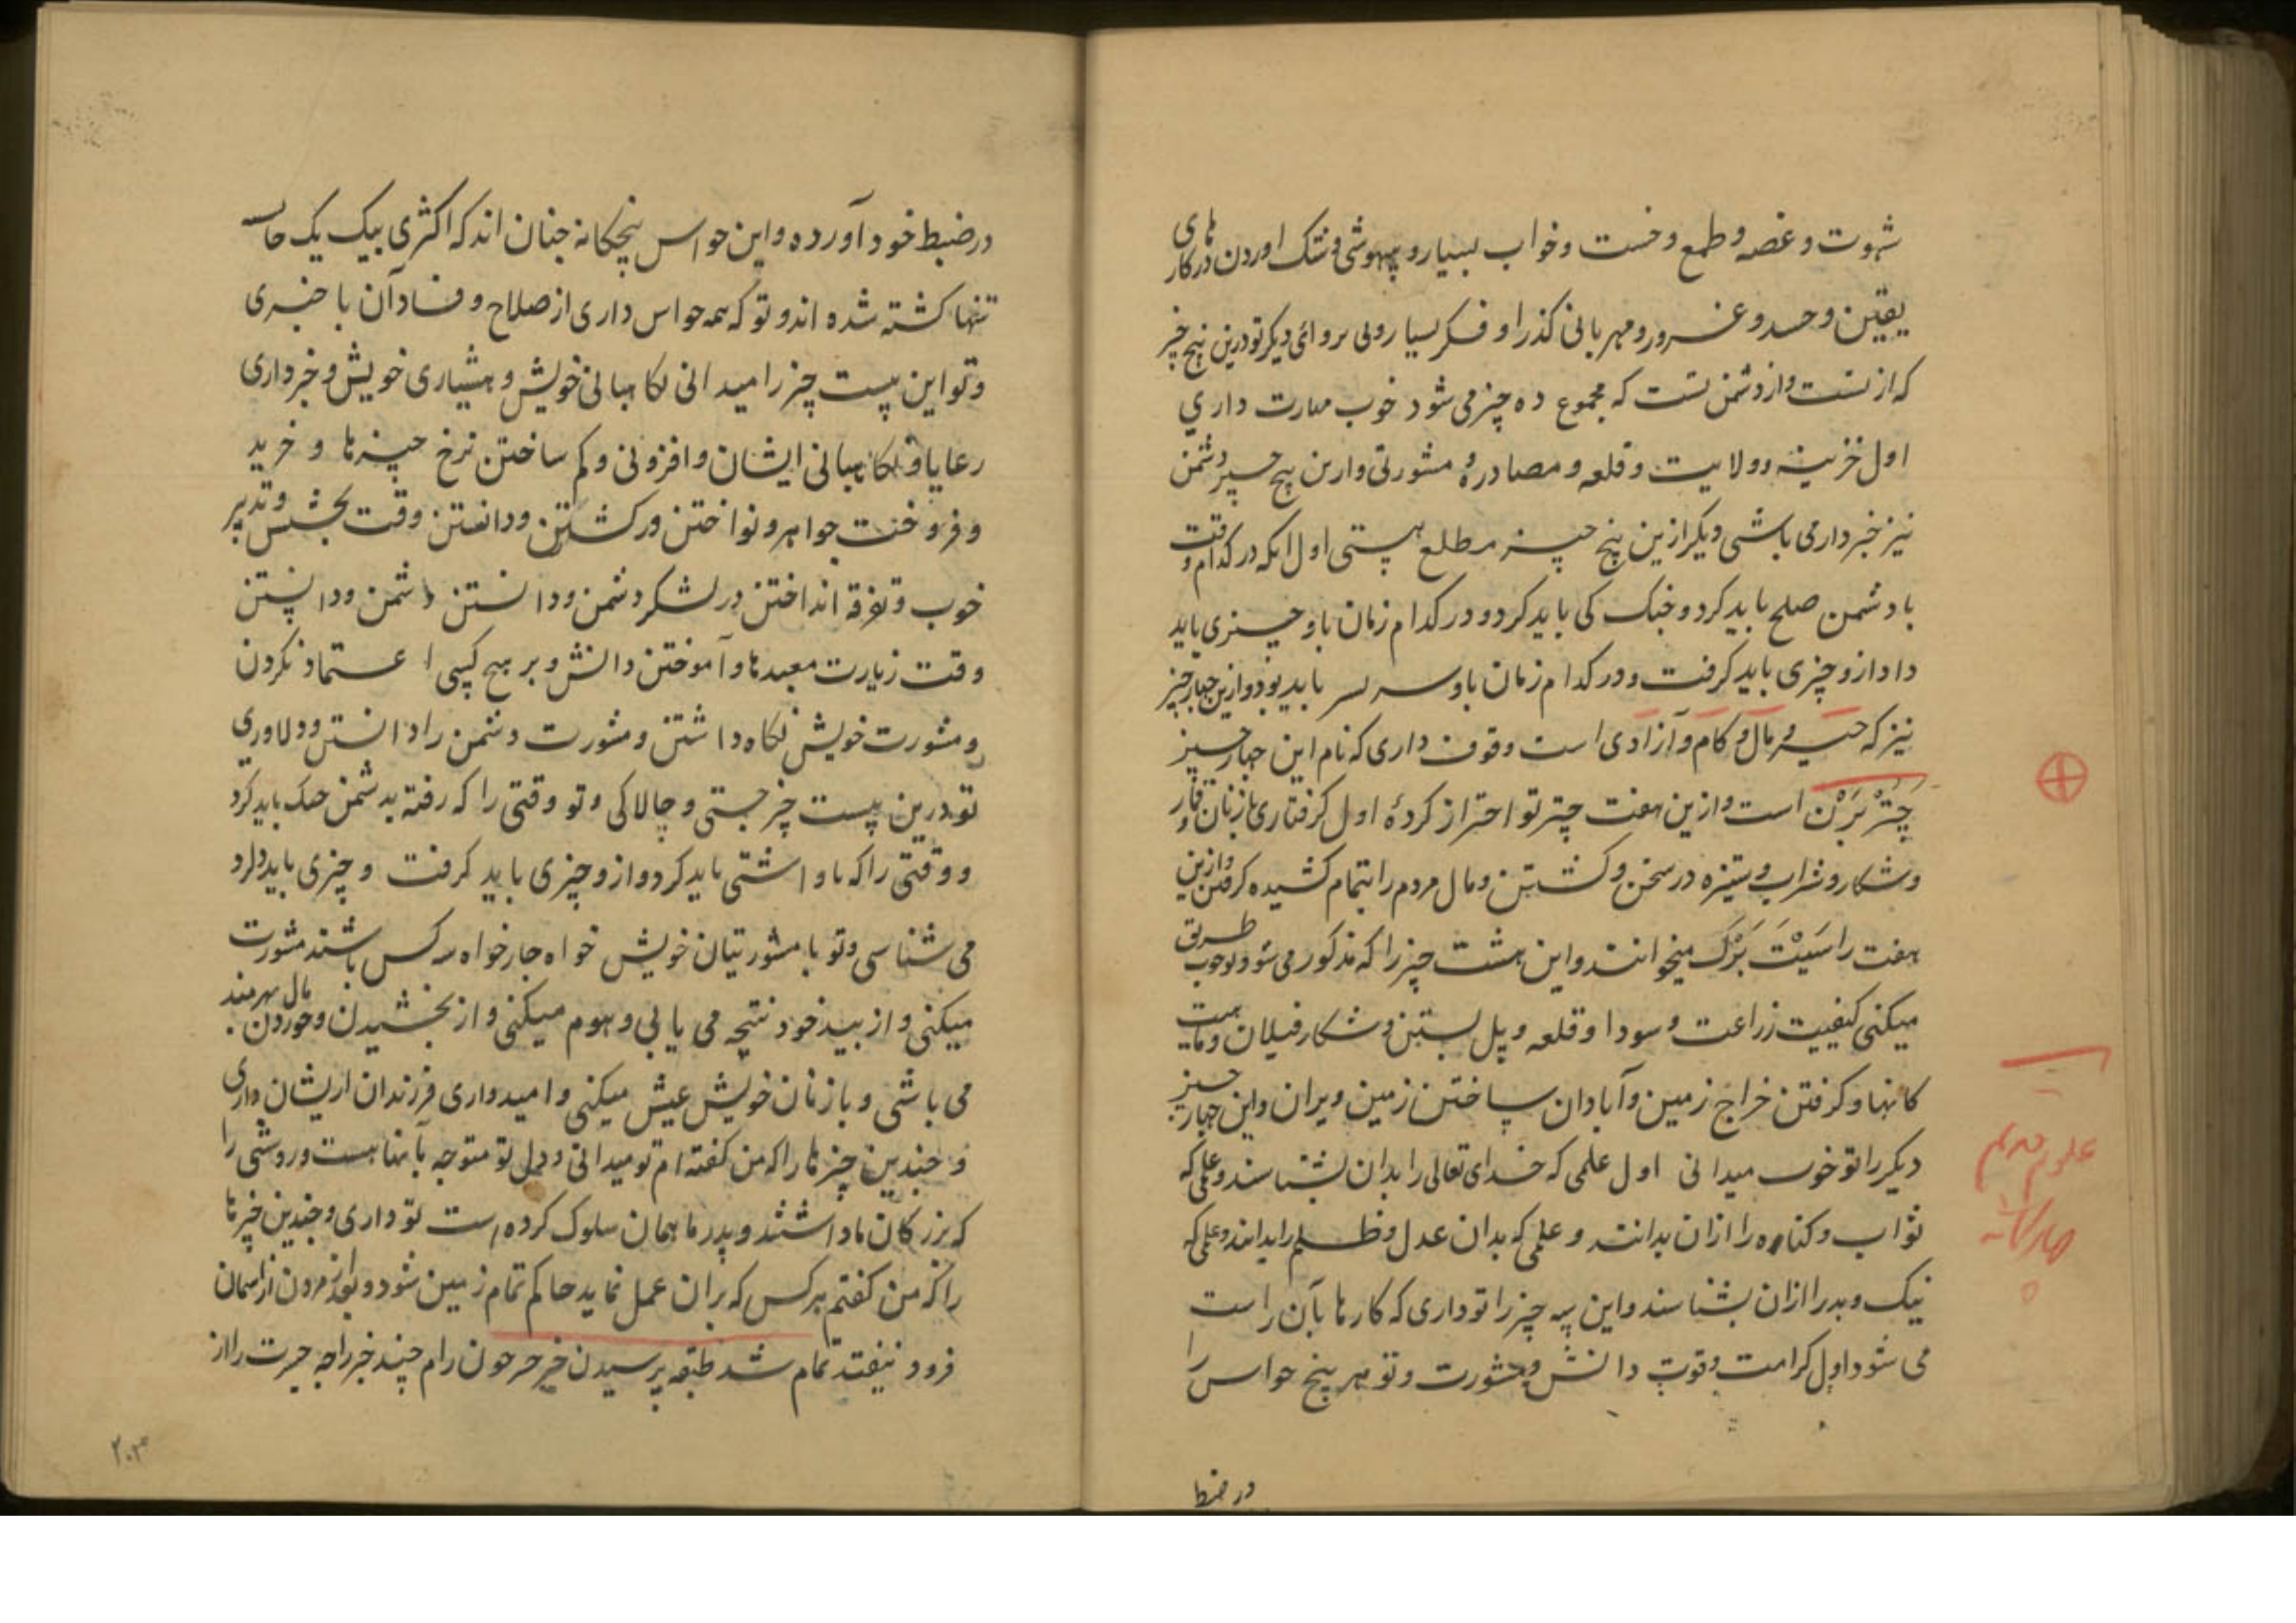 شهوت و غصه و طمع و خست و خواب بسیار و بیهوشی و ننک اوردن در کار های
یقین و حسد و غرور و مهربانی کذرا و فکر بسیار و بی پروائی دیکر تو درین پنج چیز
که از تست و از دشمن تست که مجموع ده چیز می شود خوب مهارت داري
اول خزینه و ولایت و قلعه و مصادره و مشورتی و ازین پنج چیز دشمن
نیز خبردار می باشی دیکر ازین پنج چیز مطلع هستی اول انکه در کدام وقت
با دشمن صلح باید کرد و جنک کی باید کرد و در کدام زمان باو چیزی باید
داد ازو چیزی باید کرفت و در کدام زمان باو سر بسر باید بود و ازین چهار چیز
نیز که حسب و مال و کام و آزادی است وقوف داری که نام این چهار چیز
چَتُرْبَرْن است و ازین هفت چیز تو احتراز کردهٔ اول کرفتاری با زنان و قمار
و شکار و شراب و ستیزه در سخن و کشتن و مال مردم را بتمام کشیده کرفتن و ازین
هفت را سَیْتَ بَرْک میخوانند و این هشت چیز را که مذکور می شود بوجوب طریق
میکنی کیفیت زراعت و سودا و قلعه و پل بستن و شکار فیلان و
کانها و کرفتن خراج زمین و آبادان ساختن زمین ویران و این چهار چیز
دیکر را تو خوب میدانی اول علمی که خدای تعالی را بدان بشناسند و علمی که
ثواب و کناه را ازان بدانند و علمی که بدان عدل و ظلم را بدانند و علمی که
نیک و بد را ازان بشناسند و این سه چیز را تو داری که کارها بآن راست
می شود اول کرامت و قوت دانش و مشورت و تو هر پنج حواس را
در ضبط
علوم
چهارکانه
در ضبط خود آورده و این حواس پنجکانه چنان اند که اکثری بیک یک حاسه
تنها کشته شده اند و تو که همه حواس داری از صلاح و فساد آن با خبری
و تو این بیست چیز را میدانی نکاهبانی خویش و هشیاری خویش و خبرداری
رعایا و نکاهبانی ایشان و افزونی و کم ساختن نرخ چیزها و خرید
و فروخت جواهر و نواختن و کشتن و دانستن وقت بخشش و تدبیر
خوب و تفرقه انداختن در لشکر دشمن و دانستن دشمن و دانستن
وقت زیارت معبدها و آموختن دانش و بر هیچ کسی اعتماد نکردن
و مشورت خویش نکاه داشتن و مشورت دشمن را دانستن و دلاوری
تو درین بیست چیز چستی و چالاکی و تو وقتی را که رفته بدشمن جنک باید کرد
و وقتی را که باو اشتی باید کرد و ازو چیزی باید کرفت و چیزی باید داد
می شناسی و تو با مشورتیان خویش خواه چار خواه سه کس باشند مشورت
میکنی و از بید خود نتیجه می یابی و هوم میکنی و از بخشیدن و خوردن مال بهره مند
می باشی و با زنان خویش عیش میکنی و امیدواری فرزندان از ایشان داری
و چندین چیزها را که من کفته ام تو میدانی و دل تو متوجه بآنها هست و روشی را
که بزرکان ما داشتند و پدر ما بهمان سلوک کرده است تو داری و چندین چیزها
را که من کفتم هر کس که بران عمل نماید حاکم تمام زمین شود و بعد از مردن از اسمان
فرود نیفتد تمام شد طبقه پرسیدن خیر حون رام چند خبر راجه جیرت را از
۲۰۳